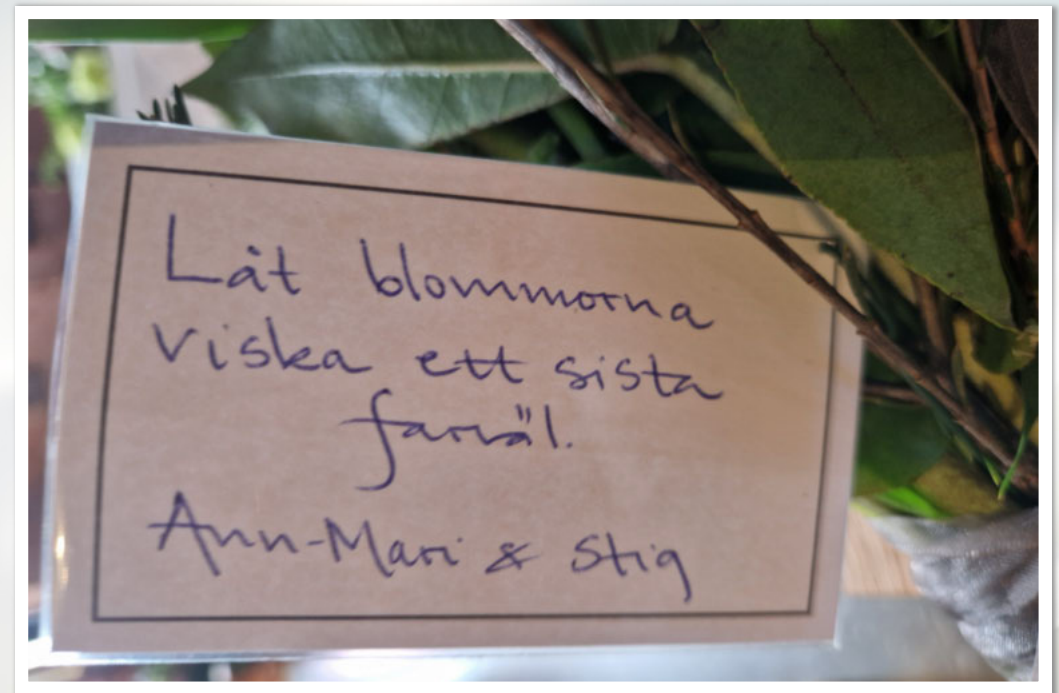 Låt blommorna
viska ett sista
farväl.
Ann-Mari & Stig